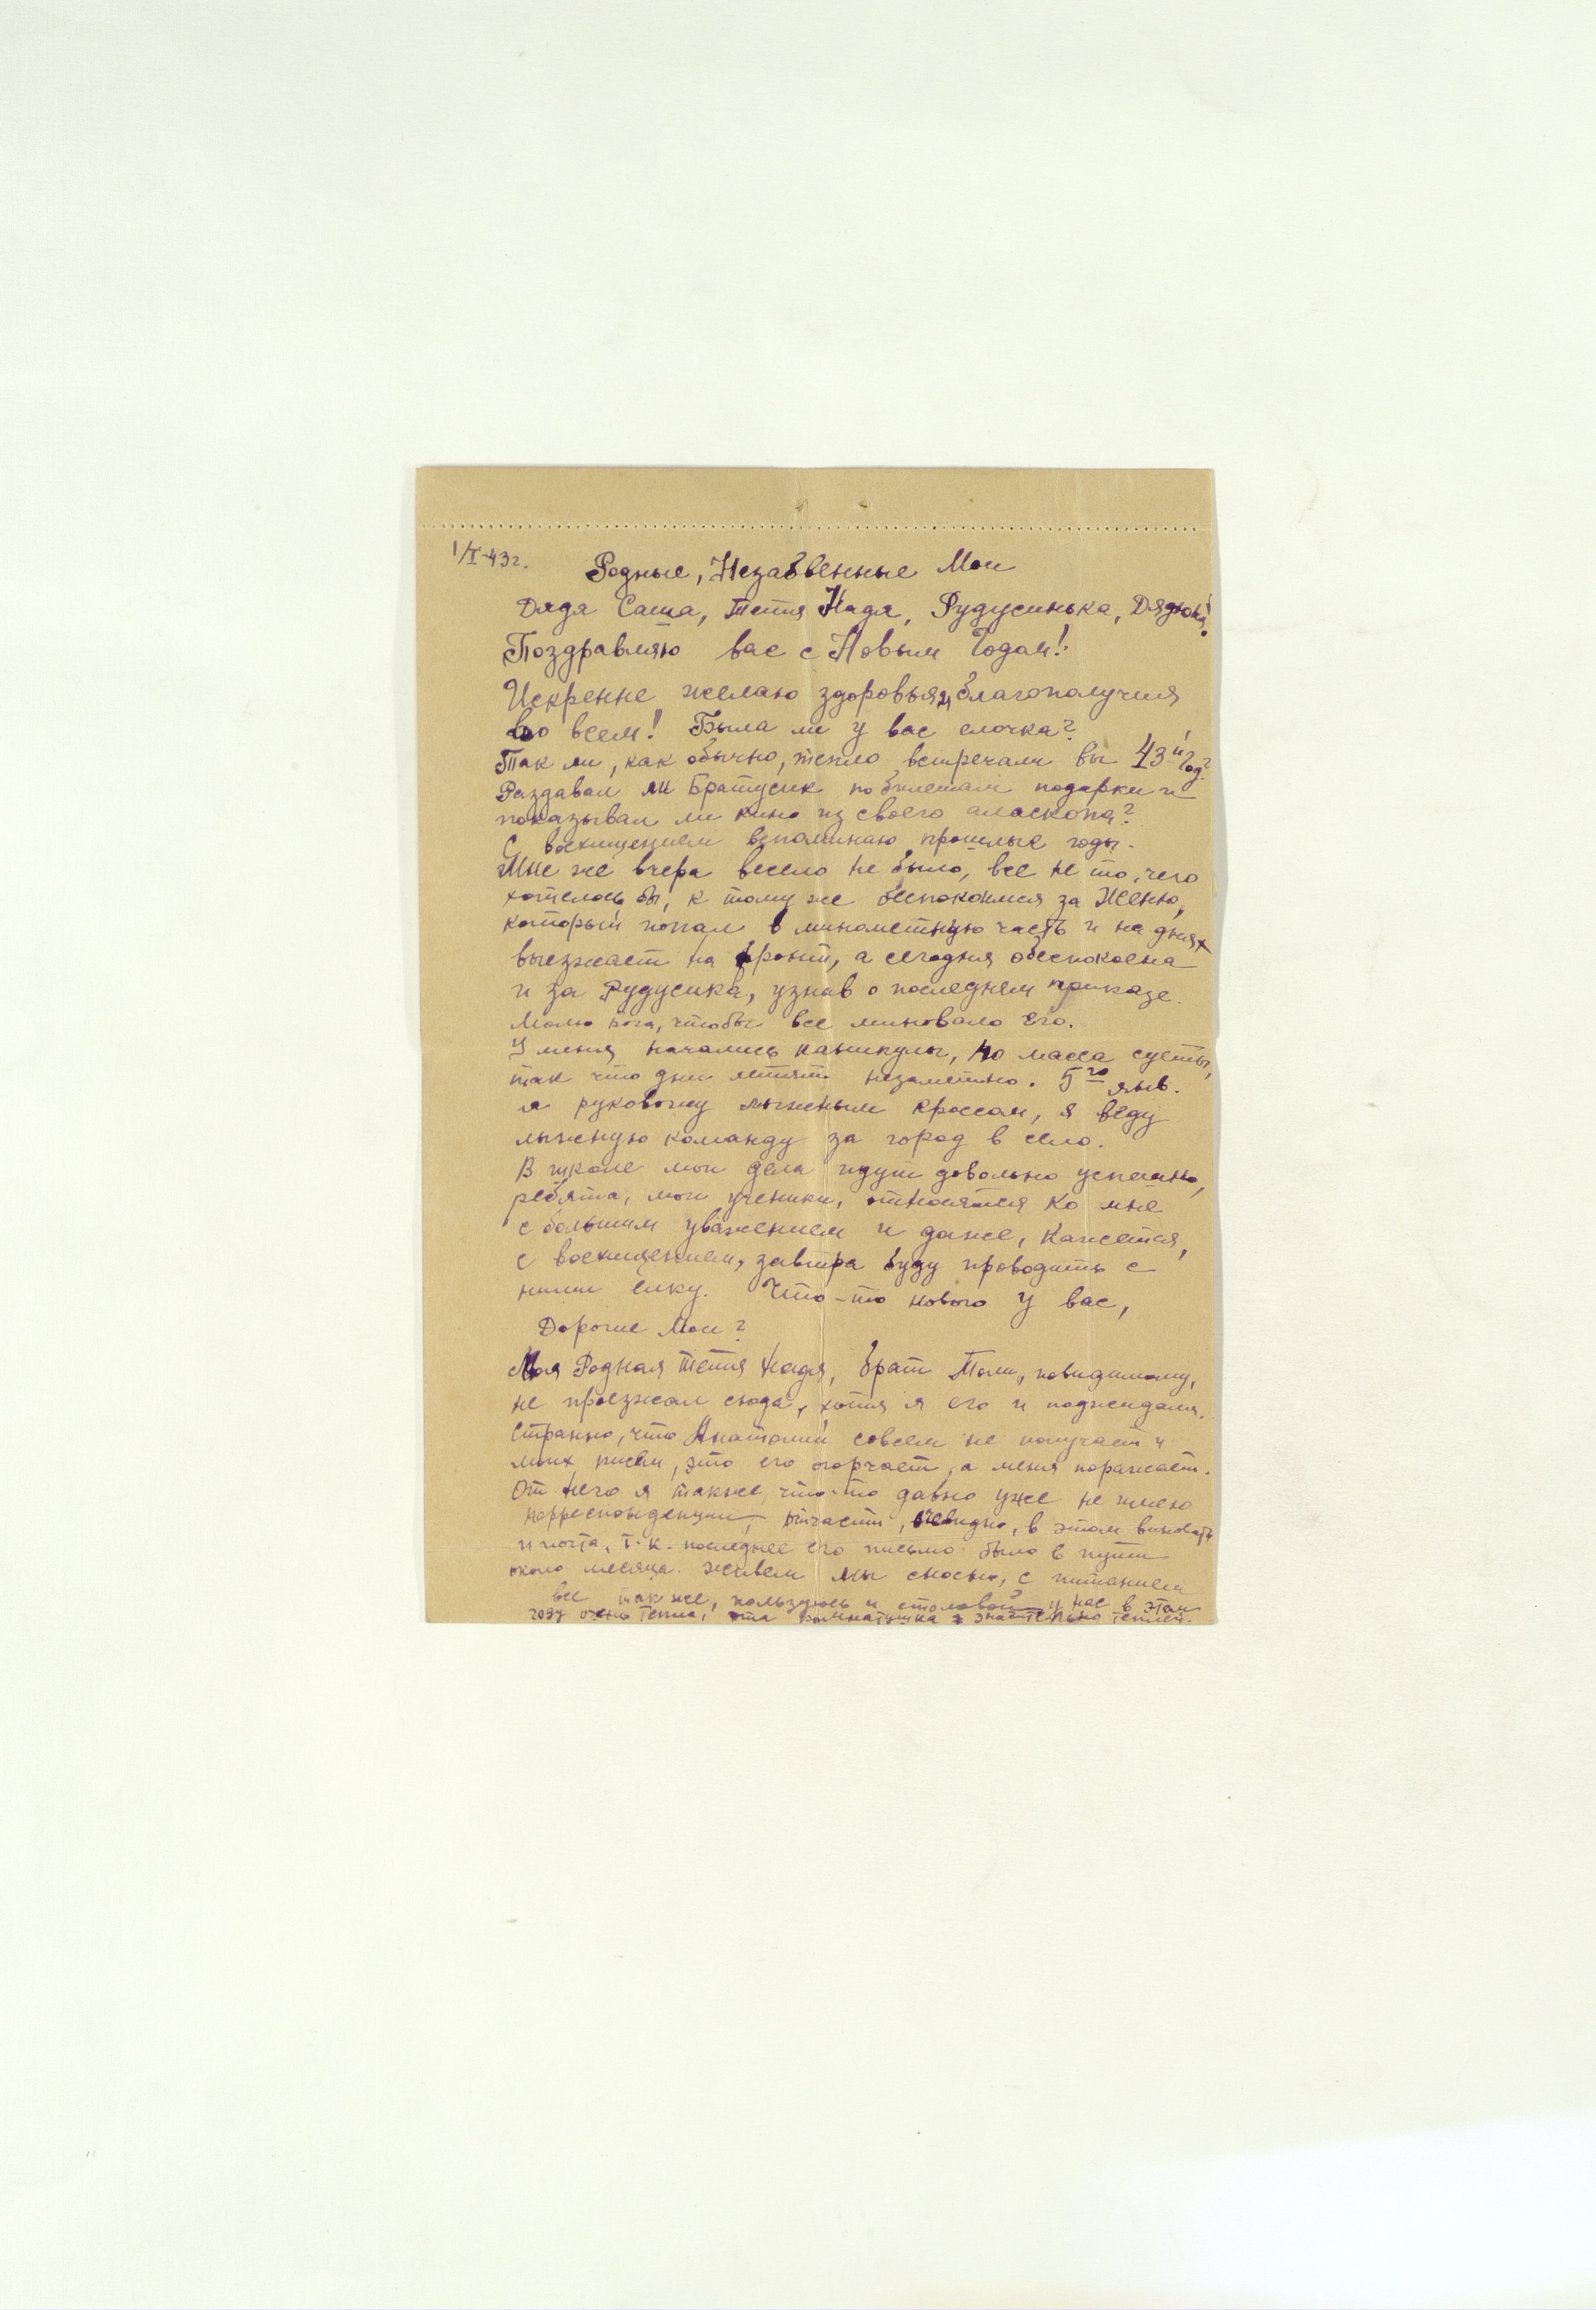 1/I-43г.
Родные, Незабвенные Мои
Дядя Саша, тетя Надя, Рудусинька, Дядюка!
Поздравляю вас с Новым Годом!
Искренне желаю здоровья, благополучия
во всем! Была ли у вас елочка?
Так ли, как обычно, тепло встречали вы 43-й год?
Раздавал ли Братусик по билетам подарки и
показывал ли кино из своего аласкопа?
С восхищением вспоминаю прошлые годы.
Мне же вчера весело не было, все не то, чего
хотелось бы, к тому же беспокоимся за Женю,
который попал в минометную часть и на днях
выезжает на фронт, а сегодня обеспокоена
и за Рудусика, узнав о последнем приказе.
Молю бога, чтобы все миновало его.
У меня начались каникулы, но масса суеты,
так что дни летят незаметно. 5го янв.
я руковожу лыжным кроссом, я веду
лыжную команду за город в село.
В школе мои дела идут довольно успешно,
ребята, мои ученики, относятся ко мне
с большим уважением и даже, кажется,
с восхищением, завтра буду проводить с
ними елку. Что-то нового у вас,
Дорогие Мои?
Моя Родная тетя Надя, брат Толи, повидимому,
не проезжал сюда, хотя я его и поджидала.
Странно, что Анатолий совсем не получает и
моих писем, это его огорчает, а меня поражает.
От него я также что-то давно уже не имею
корреспонденции, отчасти, очевидно, в этом виновата
и почта, т.к. последнее его письмо было в пути
около месяца. Живем мы сносно, с питанием
все так же, пользуюсь и столовой у нас в этом
году очень тепло, эта комнатушка значительно теплей.